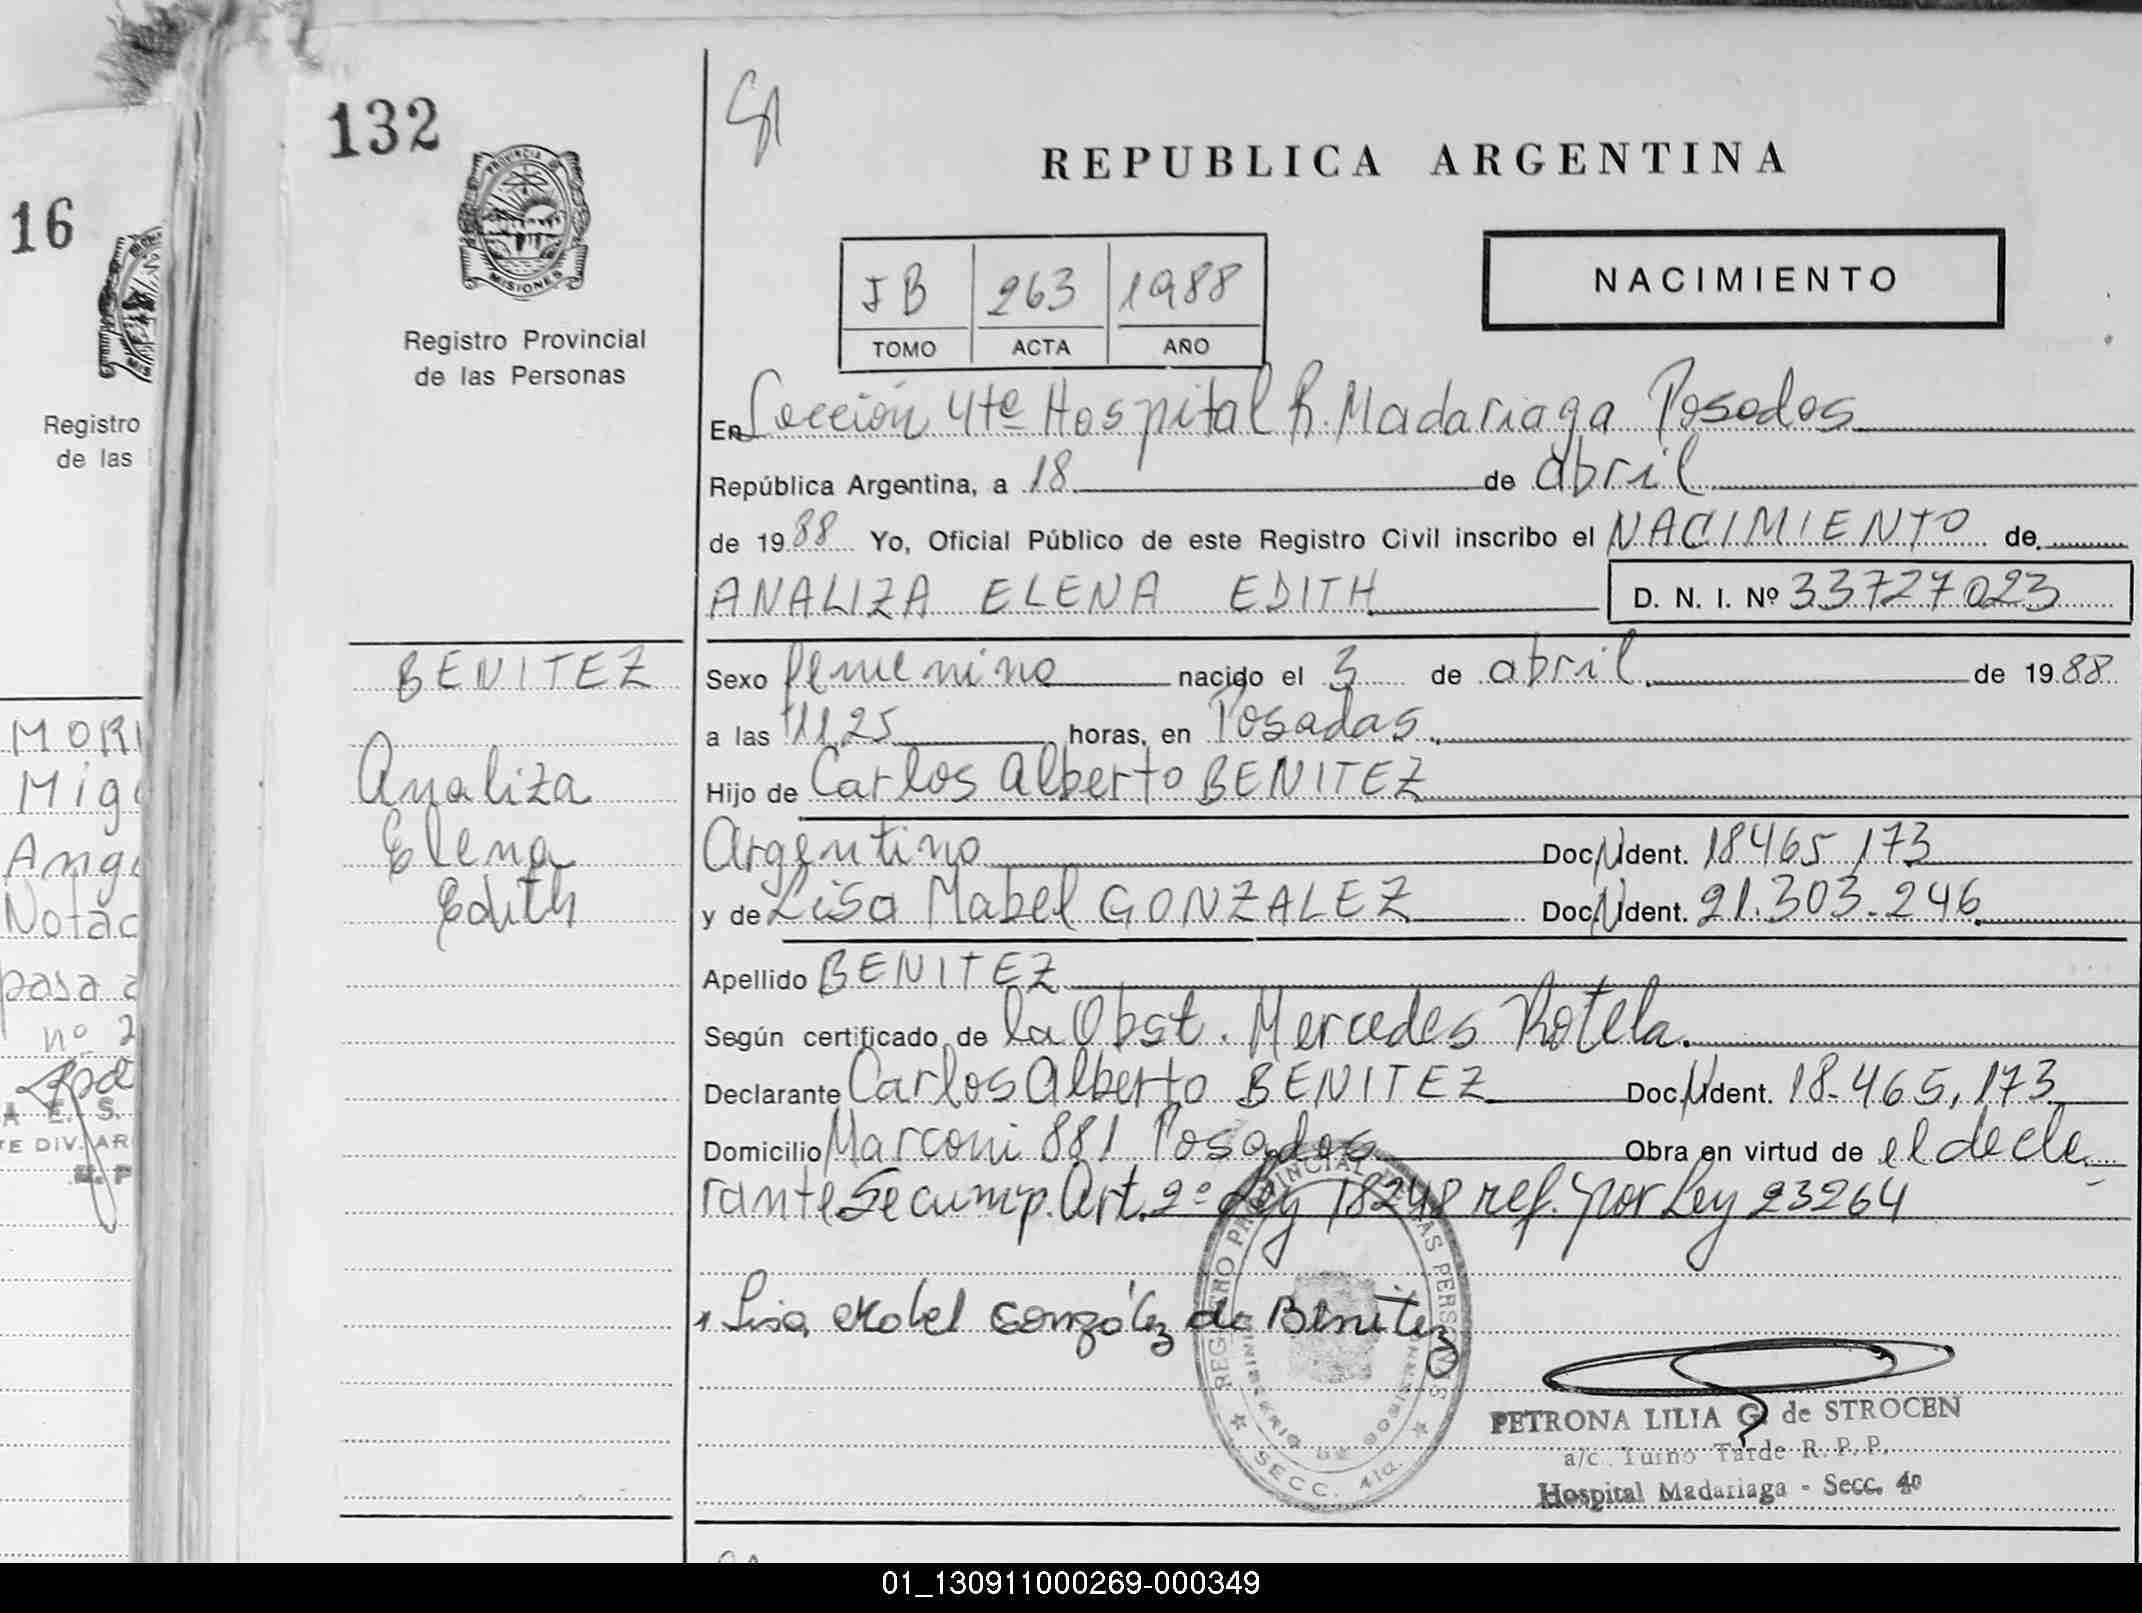 132
16
PROVINCIA DE
MISIONES
Registro Provincial
de las Personas
Registro
de las
REPUBLICA ARGENTINA
NACIMIENTO
I B 263 1988
TOMO ACTA AÑO
En Sección 4te Hospital R. Madariaga Posadas
República Argentina, a 18 de abril
de 1988 Yo, Oficial Público de este Registro Civil inscribo el NACIMIENTO de
ANALIZA ELENA EDITH D. N. I. Nº 33727023
BENITEZ
Analiza
Elena
Edith
Sexo femenino nacido el 3 de abril de 1988
a las 11,25 horas, en Posadas
Hijo de Carlos Alberto BENITEZ
Argentino Doc. N Ident. 18465,173
y de Lisa Mabel GONZALEZ Doc. N Ident. 21.303.246
Apellido BENITEZ
Según certificado de la Obst. Mercedes Rotela.
Declarante Carlos Alberto BENITEZ Doc. N Ident. 18.465,173
Domicilio Marconi 881 Posadas Obra en virtud de el decla
rante Se cump. Art. 2º Ley 18248 ref. por Ley 23264
Lisa Mabel González de Benitez
REGISTRO PROVINCIAL DE LAS PERSONAS
MINISTERIO DE GOBIERNO
SECC. 4ta.
PETRONA LILIA G. de STROCEN
a/c. Turno Tarde R. P. P.
Hospital Madariaga - Secc. 4º
MORI
Mig
Ange
Notac
pasa a
nº 2
A E. S.
TE DIV. AR
01_130911000269-000349